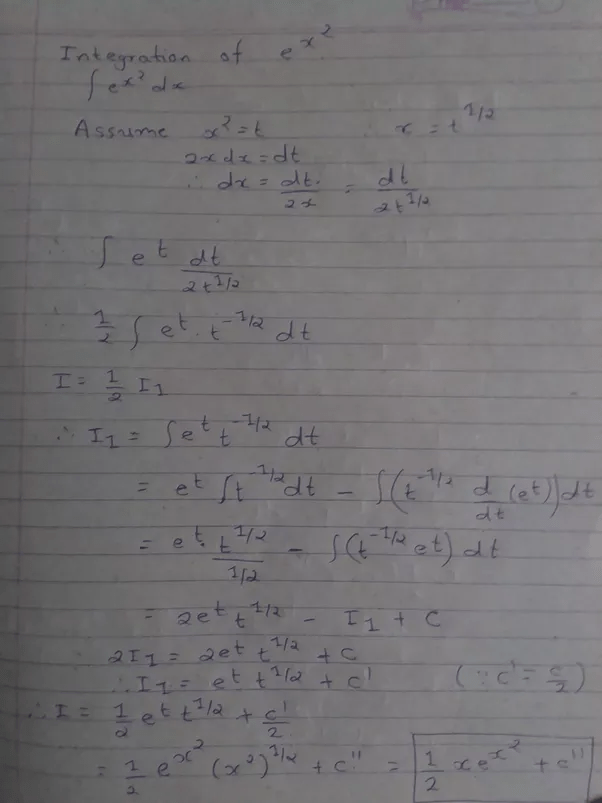 Integration of e^x^2
∫ e^x^2 dx
Assume x^2 = t ∴ x = t^1/2
2x dx = dt
∴ dx = dt/2x = dt/2t^1/2
∴ ∫ e^t dt/2t^1/2
∴ 1/2 ∫ e^t . t^-1/2 dt
I = 1/2 I1
∴ I1 = ∫ e^t t^-1/2 dt
= e^t ∫ t^-1/2 dt - ∫ (t^-1/2 d/dt (e^t)) dt
= e^t . t^1/2 / 1/2 - ∫ (t^-1/2 e^t) dt
= 2e^t t^1/2 - I1 + C
2I1 = 2e^t t^1/2 + C
∴ I1 = e^t t^1/2 + C' (∵ C' = C/2)
∴ I = 1/2 e^t t^1/2 + C'/2
= 1/2 e^x^2 (x^2)^1/2 + C'' = 1/2 x e^x^2 + C''